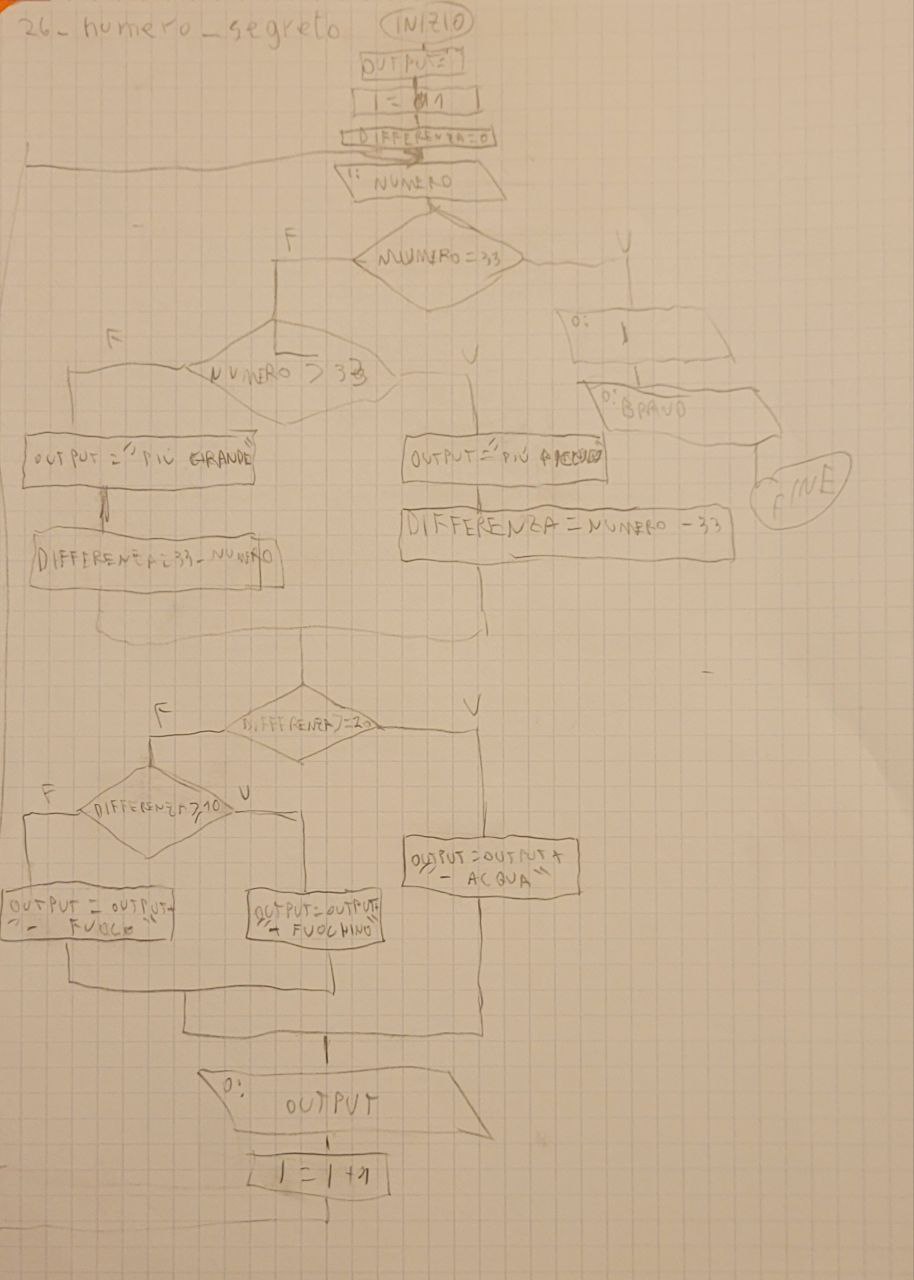 26_numero_segreto
INIZIO
OUTPUT=""
I = 1
DIFFERENZA=0
I: NUMERO
F
NUMERO=33
V
F
NUMERO > 33
V
O: I
O: BRAVO
FINE
OUTPUT = "PIÙ GRANDE"
OUTPUT = "PIÙ PICCOLO"
DIFFERENZA=33-NUMERO
DIFFERENZA = NUMERO - 33
F
DIFFERENZA>=20
V
F
DIFFERENZA>=10
V
OUTPUT = OUTPUT+
"- FUOCO"
OUTPUT=OUTPUT+
FUOCHINO"
OUTPUT = OUTPUT+
"- ACQUA"
O: OUTPUT
I = I +1